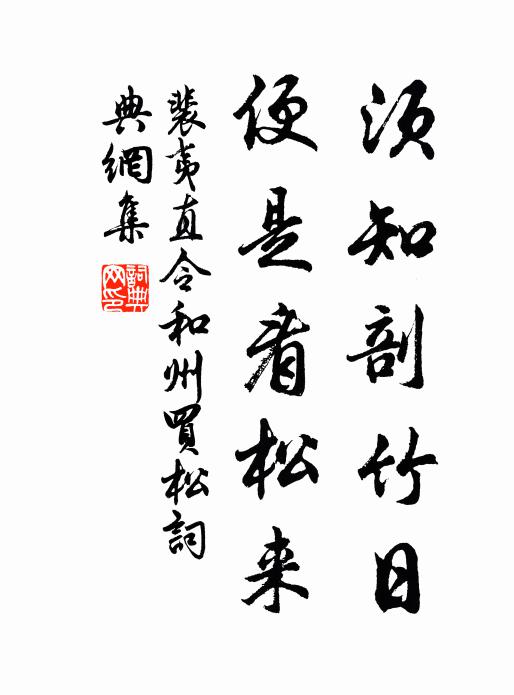 须知剖竹日
便是看松来
裴夷直令和州買松詞
典網集
詞典网印